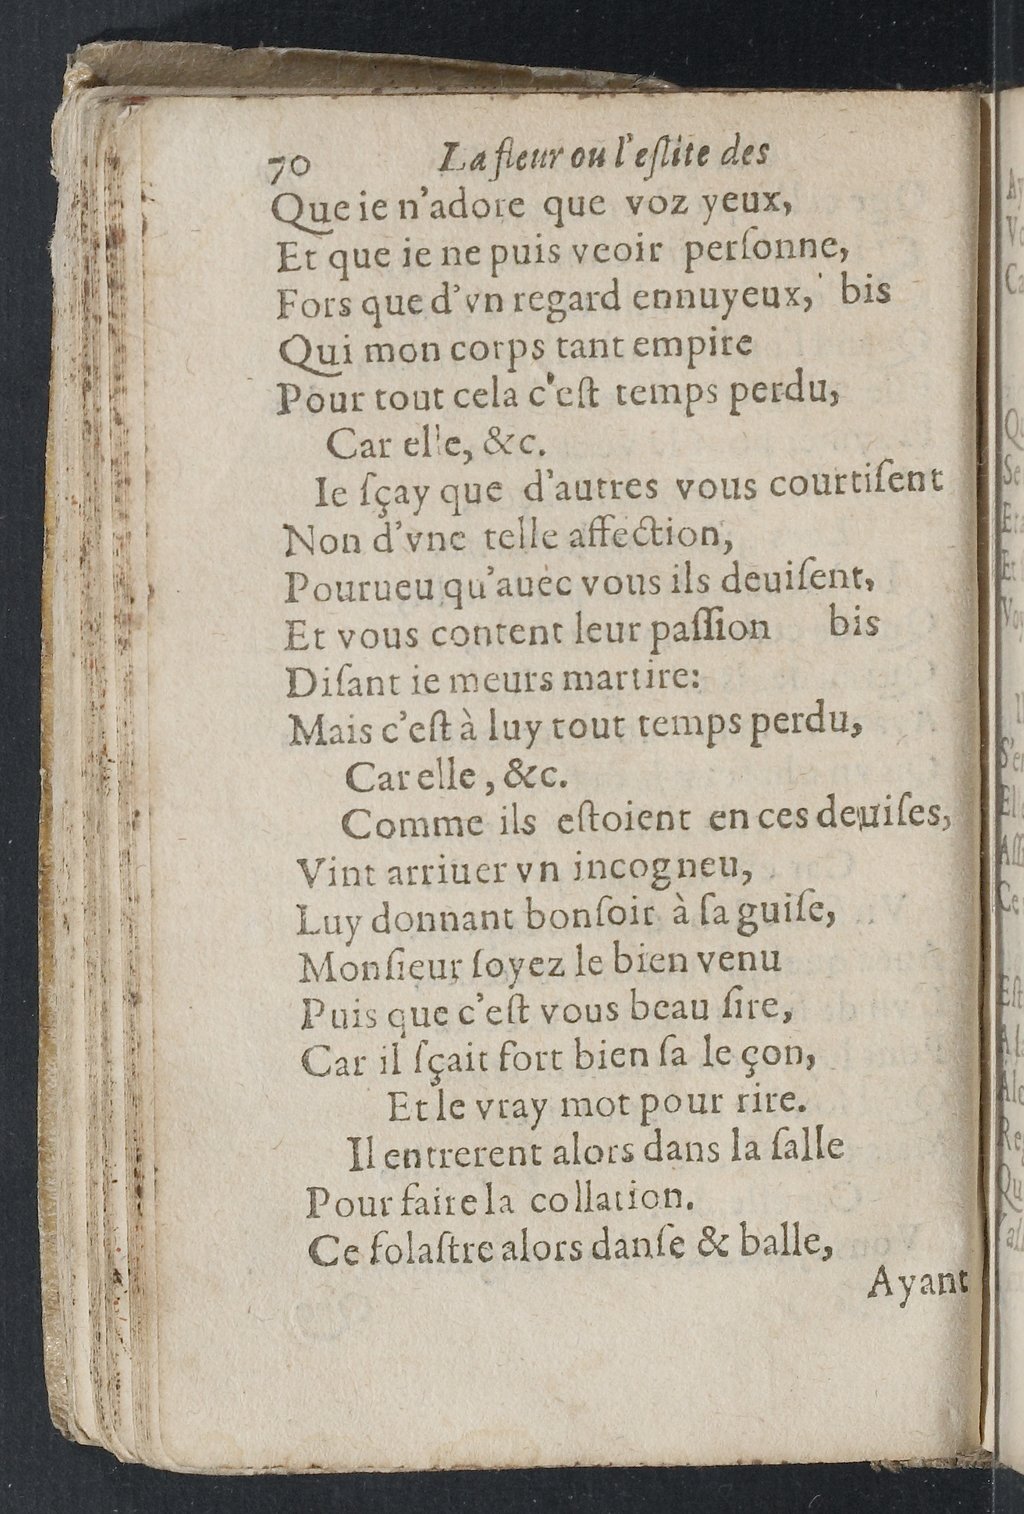 70 La fleur ou l'eſlite des
Que ie n'adore que voz yeux,
Et que ie ne puis veoir perſonne,
Fors que d'vn regard ennuyeux, bis
Qui mon corps tant empire
Pour tout cela c'eſt temps perdu,
Car elle, &c.
Ie ſçay que d'autres vous courtiſent
Non d'vne telle affection,
Pourueu qu'auec vous ils deuiſent,
Et vous content leur paſſion bis
Diſant ie meurs martire:
Mais c'eſt à luy tout temps perdu,
Car elle, &c.
Comme ils eſtoient en ces deuiſes,
Vint arriuer vn incogneu,
Luy donnant bonſoir à ſa guiſe,
Monſieur ſoyez le bien venu
Puis que c'eſt vous beau ſire,
Car il ſçait fort bien ſa le çon,
Et le vray mot pour rire.
Il entrerent alors dans la ſalle
Pour faire la collation.
Ce folaſtre alors danſe & balle,
Ayant